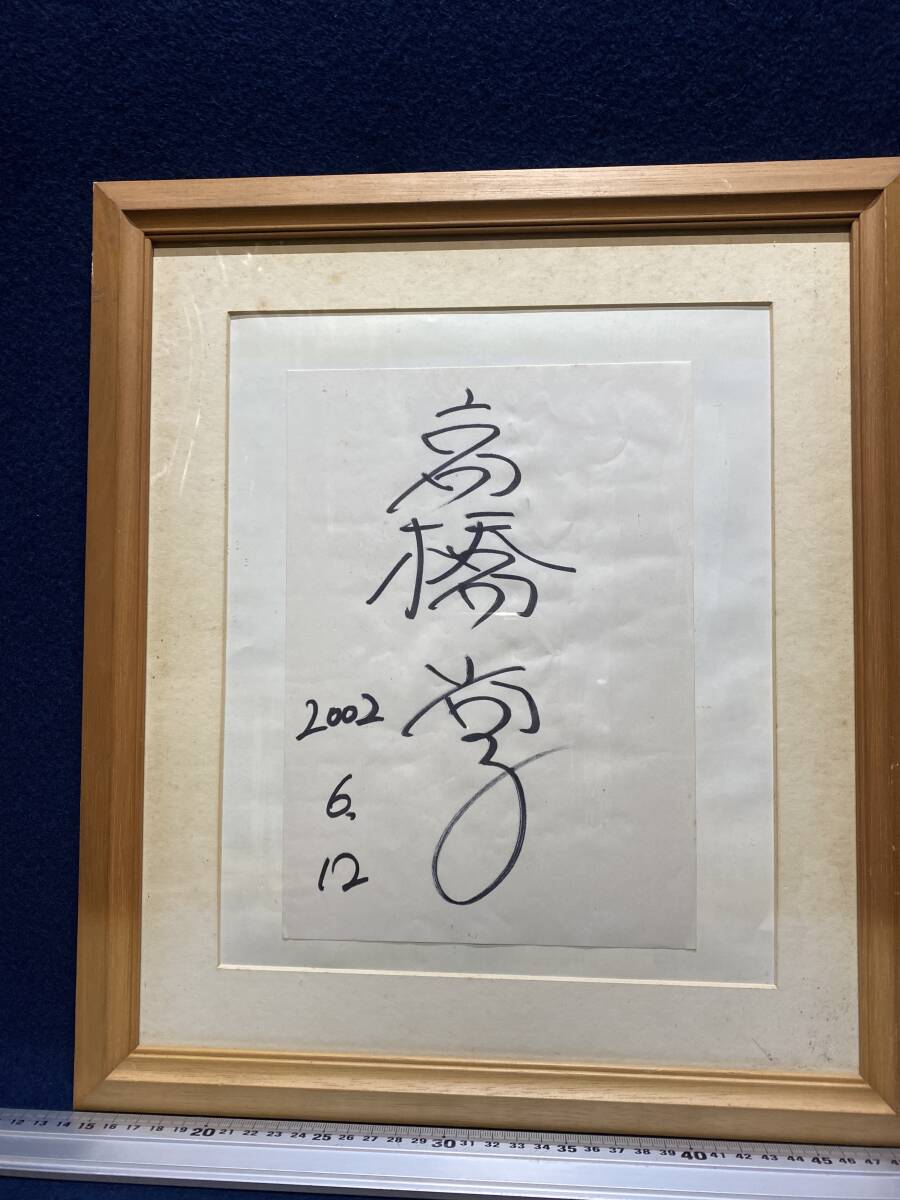 高橋尚子
2002
6.
12
12 13 14 15 16 17 18 19 20 21 22 23 24 25 26 27 28 29 30 31 32 33 34 35 36 37 38 39 40 41 42 43 44 45 46 47